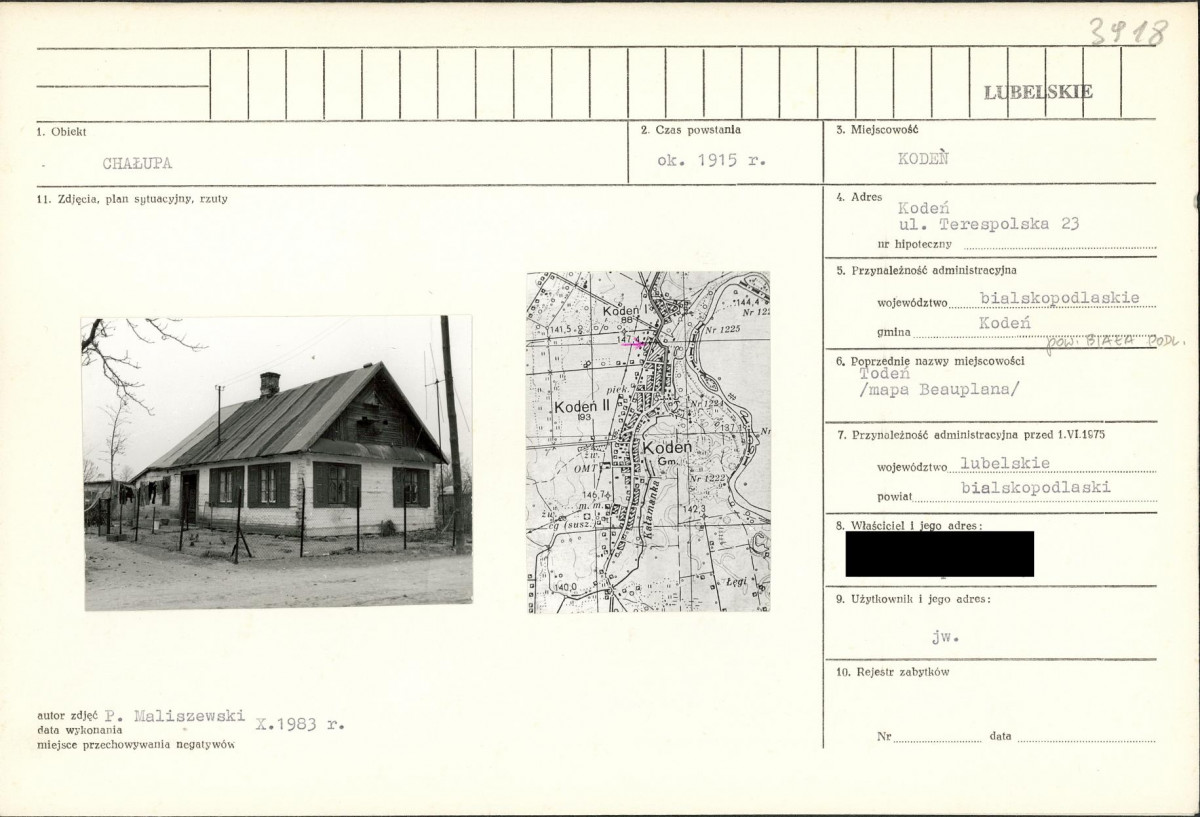 3918
LUBELSKIE
1. Obiekt
CHAŁUPA
2. Czas powstania
ok. 1915 r.
3. Miejscowość
KODEŃ
4. Adres
Kodeń
ul. Terespolska 23
nr hipoteczny
5. Przynależność administracyjna
województwo bialskopodlaskie
gmina Kodeń
pow. BIAŁA PODL.
6. Poprzednie nazwy miejscowości
Todeń
/mapa Beauplana/
7. Przynależność administracyjna przed 1.VI.1975
województwo lubelskie
powiat bialskopodlaski
8. Właściciel i jego adres:
9. Użytkownik i jego adres:
jw.
10. Rejestr zabytków
Nr data
11. Zdjęcia, plan sytuacyjny, rzuty
144,4
Nr 12
Kodeń I
88
141,5
147,4
Nr 1225
piek.
Nr 1224
Kodeń II
193
137,1
Kodeń
Gm.
OMT
Nr 1222
146,7
m. m.
cg (susz.)
Kałamanka
142,3
Łęgi
140,0
autor zdjęć P. Maliszewski
data wykonania X.1983 r.
miejsce przechowywania negatywów